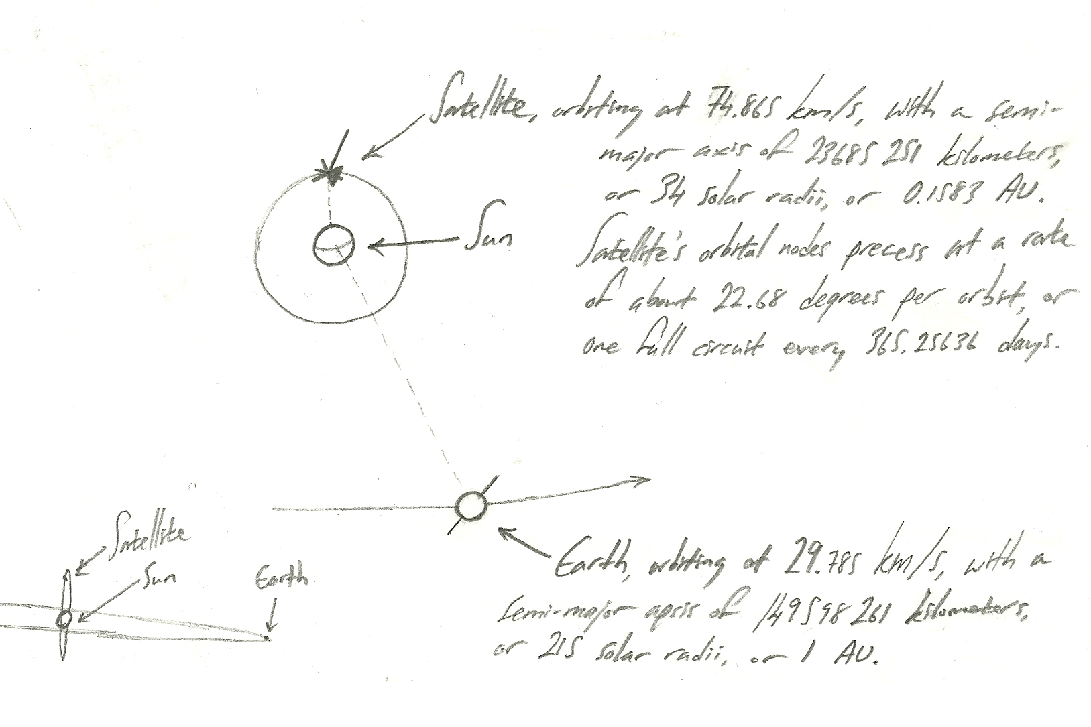 Satellite, orbiting at 74.865 km/s, with a semi-
major axis of 23685 251 kilometers,
or 34 solar radii, or 0.1583 AU.
Sun
Satellite's orbital nodes precess at a rate
of about 22.68 degrees per orbit, or
one full circuit every 365.25636 days.
Satellite
Sun
Earth
Earth, orbiting at 29.785 km/s, with a
semi-major apsis of 149598 261 kilometers,
or 215 solar radii, or 1 AU.